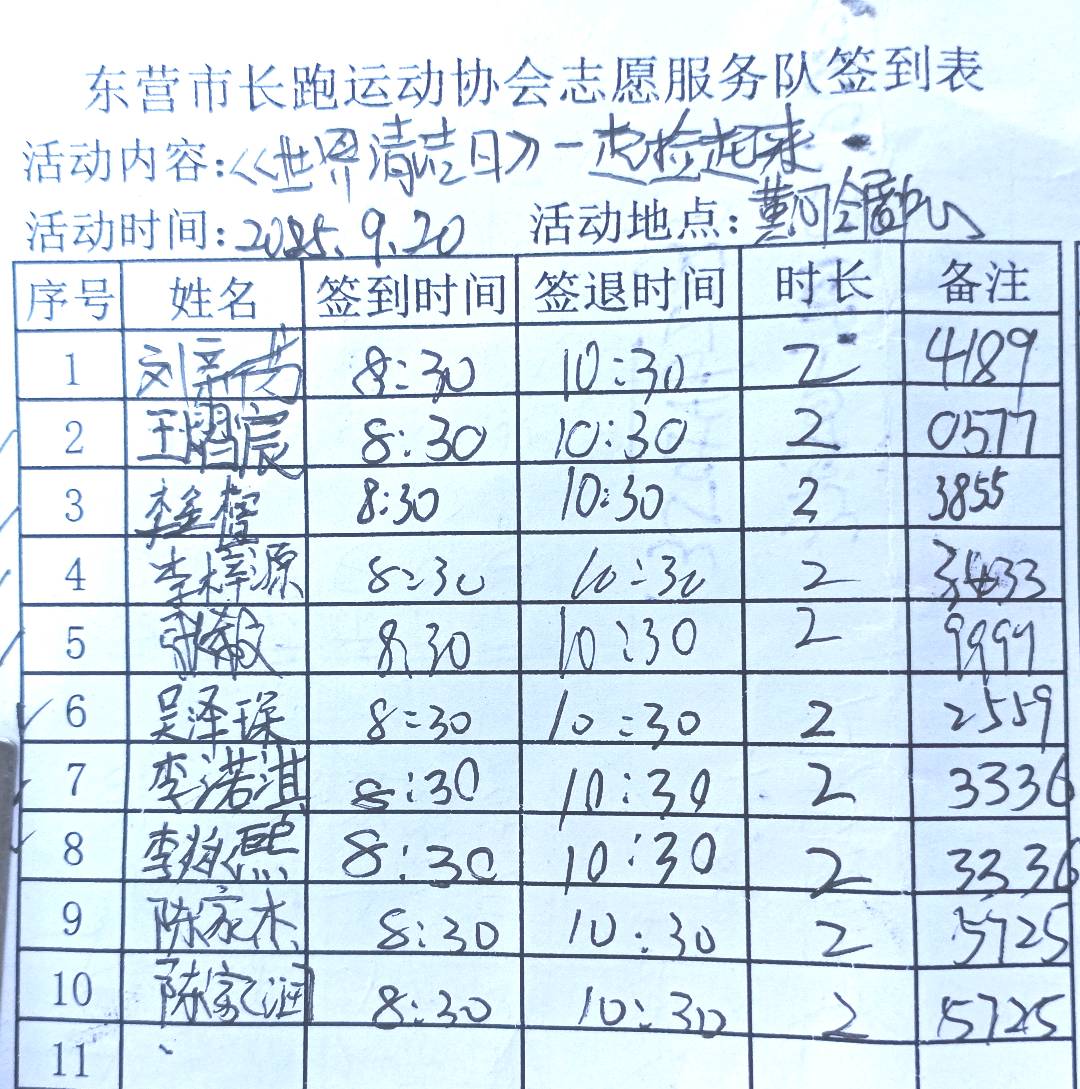 东营市长跑运动协会志愿服务队签到表
活动内容:《世界清洁日》一起捡起来
活动时间:2025.9.20 活动地点:黄河
序号 姓名 签到时间 签退时间 时长 备注
1 刘 8:30 10:30 2 4189
2 王熠宸 8:30 10:30 2 0577
3 李 8:30 10:30 2 3855
4 李梓源 8:30 10:30 2
5 张 8:30 10:30 2 9997
6 吴泽琛 8:30 10:30 2 2559
7 李诺淇 8:30 10:30 2 3336
8 李 熙 8:30 10:30 2 3336
9 陈家杰 8:30 10:30 2 5725
10 陈家润 8:30 10:30 2 5725
11